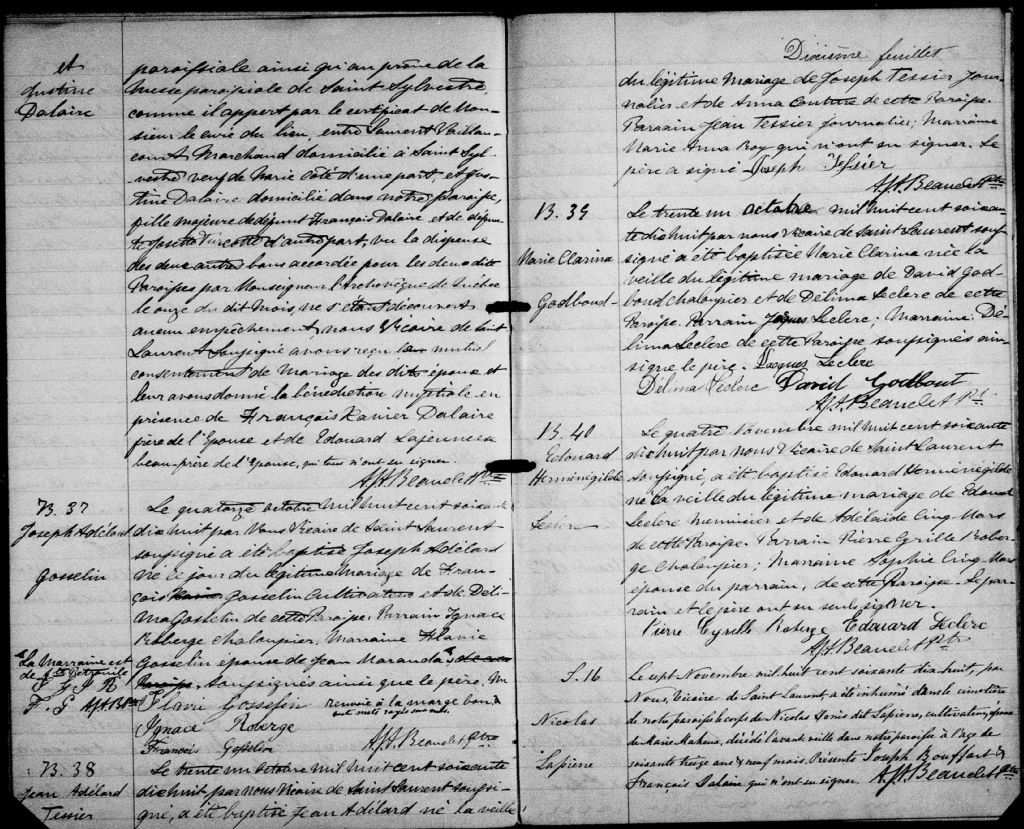 et
Justine
Dalaire
paroissiale ainsi qu'au prône de la
messe paroissiale de Saint Sylvestre,
comme il appert par le certificat de Mon-
sieur le curé du lieu, entre Laurent Vaillan-
court, Marchand domicilié à Saint Syl-
vestre veuf de Marie Coté d'une part et Jus-
tine Dalaire domiciliée dans notre paroisse,
fille majeure de défunt François Dalaire et de défun-
te Josette Turcotte d'autre part, vu la dispense
des deux autres bans accordée pour les deux dites
Paroisses par Monseigneur l'Archevêque de Québec
le onze du dit mois, ne s'étant découvert
aucun empêchement, nous Vicaire de Saint
Laurent Soussigné avons reçu leur mutuel
consentement de Mariage des dits époux et
leur avons donné la bénédiction nuptiale en
présence de François Xavier Dalaire
frère de l'Epouse et de Edouard Lajeunesse
beau-frère de l'Epouse, qui tous n'ont su signer.
AJH. Beaudet Ptre
B. 37
Joseph Adélard
Gosselin
Le quatorze octobre mil huit cent soixante
dix huit par Nous Vicaire de Saint Laurent
soussigné a été baptisé Joseph Adélard
né ce jour du légitime Mariage de Fran-
çois Gosselin Cultivateur et de Déli-
ma Gosselin de cette Paroisse. Parrain Ignace
Roberge chaloupier, Marraine Flavie
Gosselin épouse de Jean Maranda de cette
Paroisse, soussignés ainsi que le père. Un
renvoi à la marge bon,
mots rayés sont nuls.
La Marraine est
de Ste Pétronille
F. G I R
F. G AJH. B Ptre
Flavie Gosselin
Ignace Roberge
François Gosselin
AJH. Beaudet Ptre
B. 38
Jean Adélard
Tessier
Le trente un octobre mil huit cent soixante
dix huit par nous Vicaire de Saint Laurent soussi-
gné, a été baptisé Jean Adélard né la veille
Dixième feuillet
du légitime Mariage de Joseph Tessier Jour-
nalier et de Anna Couture de cette Paroisse.
Parrain Jean Tessier journalier; Marraine
Marie Anna Roy qui n'ont su signer. Le
père a signé Joseph Tessier
AJH. Beaudet Ptre
B. 39
Marie Clarina
Godboud
Le trente un octobre mil huit cent soixan-
te dix huit par nous Vicaire de Saint Laurent sous-
signé a été baptisée Marie Clarina née la
veille du légitime mariage de David God-
boud chaloupier et de Délima Leclerc de cette
Paroisse. Parrain Jacques Leclerc; Marraine Dé-
lima Leclerc de cette Paroisse soussignés ain-
si que le père. Jacques Leclerc
Délima Leclerc David Godbout
AJH. Beaudet Pt.
B. 40
Edouard
Herménégilde
Leclerc
Le quatre Novembre mil huit cent soixante
dix huit par nous Vicaire de Saint Laurent
soussigné, a été baptisé Edouard Herménégilde
né la veille du légitime mariage de Edouard
Leclerc Menuisier et de Adélaïde Cinq Mars
de cette Paroisse. Parrain Pierre Cyrille Rober-
ge Chaloupier; Marraine Sophie Cinq Mars
épouse du parrain, de cette paroisse. Le par-
rain et le père ont su seuls signer.
Pierre Cyrille Roberge Edouard Leclerc
AJH. Beaudet Ptre
S. 16
Nicolas
Lapierre
Le sept Novembre mil huit cent soixante dix huit, par
Nous, Vicaire de Saint Laurent, a été inhumé dans le cimetière
de notre paroisse le corps de Nicolas Denis dit Lapierre, cultivateur, époux
de Marie Maheux, décédé l'avant veille dans notre paroisse à l'âge de
soixante treize ans & neuf mois. Présents Joseph Bouffard &
François Dalaire qui n'ont su signer. AJH. Beaudet Ptre